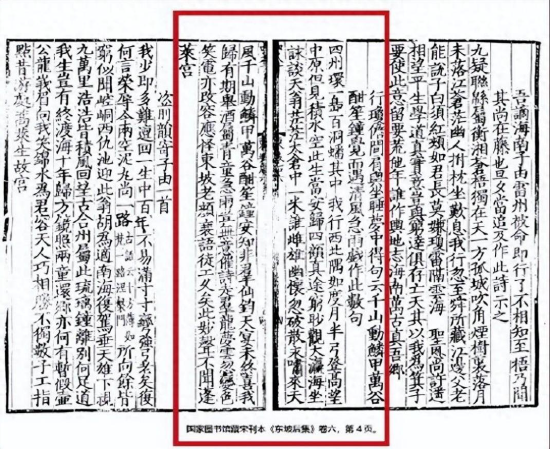 吾謫海南子由雷州被命即行了不相知至梧乃聞
其尚在藤也旦夕當追及作此詩示之
九疑聯綿屬衡湘蒼梧獨在天一方孤城吹角煙樹裏落月
未落江蒼茫幽人拊枕坐歎息我行忽至舜所藏江邊父老
能說子白須紅頰如君長莫嫌瓊雷隔雲海聖恩尚許遥
相望平生學道真實意豈與窮達俱存亡天其以我為箕子
要使此意留要荒他年誰作輿地志海南萬古真吾鄉
行瓊儋間肩輿坐睡夢中得句云千山動鱗甲萬谷
酣笙鐘覺而遇清風急雨戲作此數句
四州環一島百洞蟠其中我行西北隅如度月半弓登高望
中原但見積水空此生當安歸四顧真途窮眇觀大瀛海坐
詠談天翁茫茫太倉中一米誰雌雄幽懷忽破散永嘯來天
風千山動鱗甲萬谷酣笙鐘安知非羣仙鈞天宴未終喜我
歸有期舉酒屬青童急雨豈無意催詩走羣龍夢雲忽變色
笑電亦改容應怪東坡老顏衰語徒工久矣此妙聲不聞蓬
萊宮
次前韻寄子由一首
我少即多難邅回一生中百年不易滿寸寸彎強弓老矣復
何言榮辱今兩空泥丸尚一路古語云十方薄伽梵一路涅槃門所向餘皆
窮似聞崆峒西仇池迎此翁胡為適南海復駕垂天雄下視
九萬里浩浩皆積風回望古合州屬此琉璃鍾離別何足道
我生豈有終渡海十年歸方鏡照兩童還鄉亦何有暫假壺
公龍峨眉向我笑錦水為君容天人巧相勝不獨數子工指
點昔游處蒿萊生故宮
国家图书馆藏宋刊本《东坡后集》卷六，第4页。